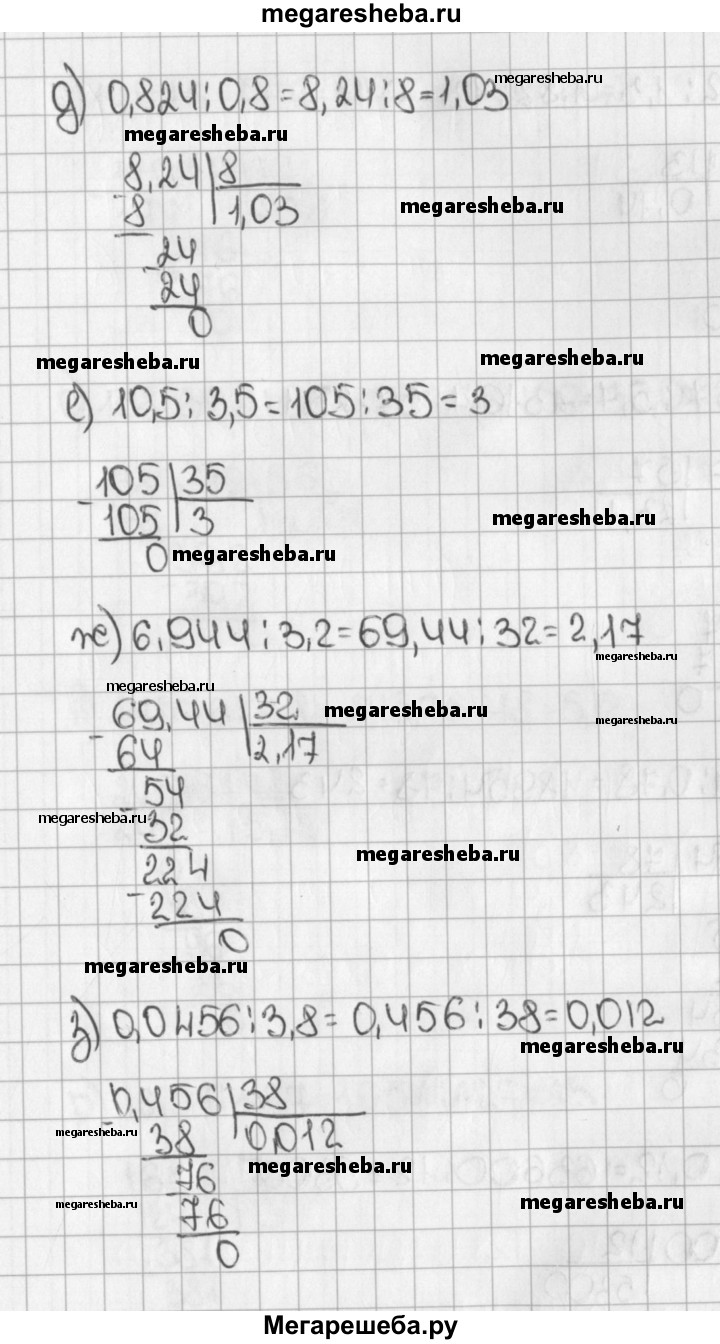 megaresheba.ru
д) 0,824:0,8=8,24:8=1,03 megaresheba.ru
megaresheba.ru
8,24 8
- 8 1,03 megaresheba.ru
- 24
24
0
megaresheba.ru megaresheba.ru
е) 10,5:3,5=105:35=3
- 105 35
105 3 megaresheba.ru
0 megaresheba.ru
ж) 6,944:3,2=69,44:32=2,17
megaresheba.ru
megaresheba.ru
- 69,44 32 megaresheba.ru megaresheba.ru
64 2,17
- 54
megaresheba.ru
32
224 megaresheba.ru
- 224
0
megaresheba.ru
з) 0,0456:3,8=0,456:38=0,012
megaresheba.ru
- 0,456 38
megaresheba.ru 38 0,012
- 76 megaresheba.ru
megaresheba.ru 76 megaresheba.ru
0
Мегарешеба.ру